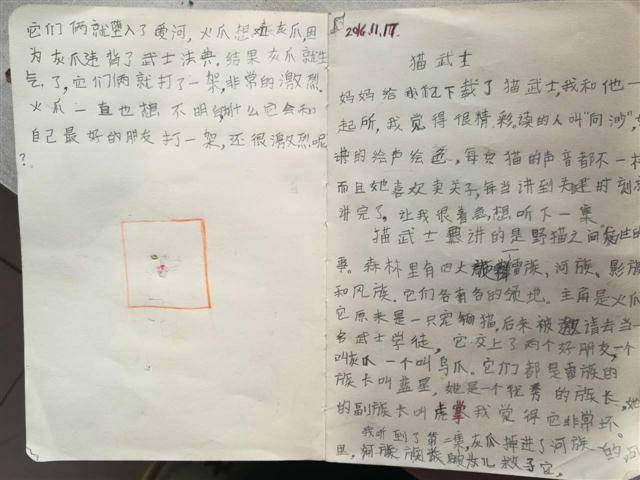 2016.11.17.
猫武士
妈妈给我们下载了猫武士,我和他一
起听,我觉得很精彩。读的人叫"同渺",
讲的绘声绘色,每只猫的声音都不一样
而且她喜欢卖关子,每当讲到关键时刻
讲完了,让我很着急,想听下一集
猫武士是讲的是野猫之间发生的
事。森林里有四大雷族、河族、影族
和风族.它们各有各的领地。主角是火爪
它原来是一只宠物猫,后来被邀请去当一
名武士学徒,它交上了两个好朋友,一个
叫灰爪 一个叫乌爪。它们都是雷族的
族长叫蓝星,她是一个优秀的族长
的副族长叫虎掌我觉得它非常坏。
我听到了第二集,灰爪掉进了河族的河
里,河族族的女儿救了它,
它们俩就堕入了爱河,火爪想灰爪,因
为灰爪违背了武士法典.结果灰爪就生
气了,它们俩就打了一架,非常的激烈.
火爪一直也想不明白,什么它会和
自己最好的朋友打一架,还很激烈呢
?